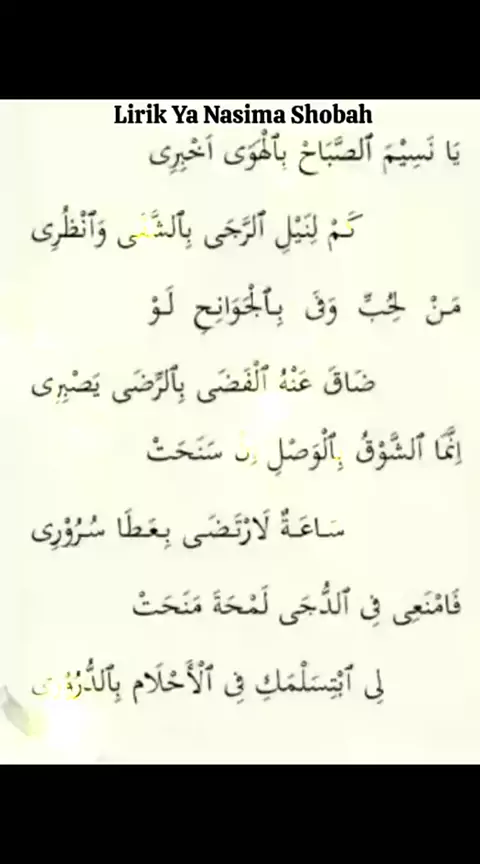 Lirik Ya Nasima Shobah
يَا نَسِيْمَ ٱلصَّبَاحْ بِٱلْهَوَى اَخْبِرِى
كَمْ لِنَيْلِ ٱلرَّجَى بِٱلشَّفَى وَٱنْظُرِى
مَنْ لِحُبِّ وَفَى بِٱلْجَوَانِحِ لَوْ
ضَاقَ عَنْهُ ٱلْفَضَى بِٱلرِّضَى يَصْبِرِى
اِنَّمَا ٱلشَّوْقُ بِٱلْوَصْلِ اِنْ سَنَحَتْ
سَاعَةٌ لَارْتَضَى بِعَطَا سُرُوْرِى
فَامْنَعِى فِى ٱلدُّجَى لَمْحَةَ مَنَحَتْ
لِى ٱبْتِسَلْمَكِ فِى ٱلْأَحْلَام